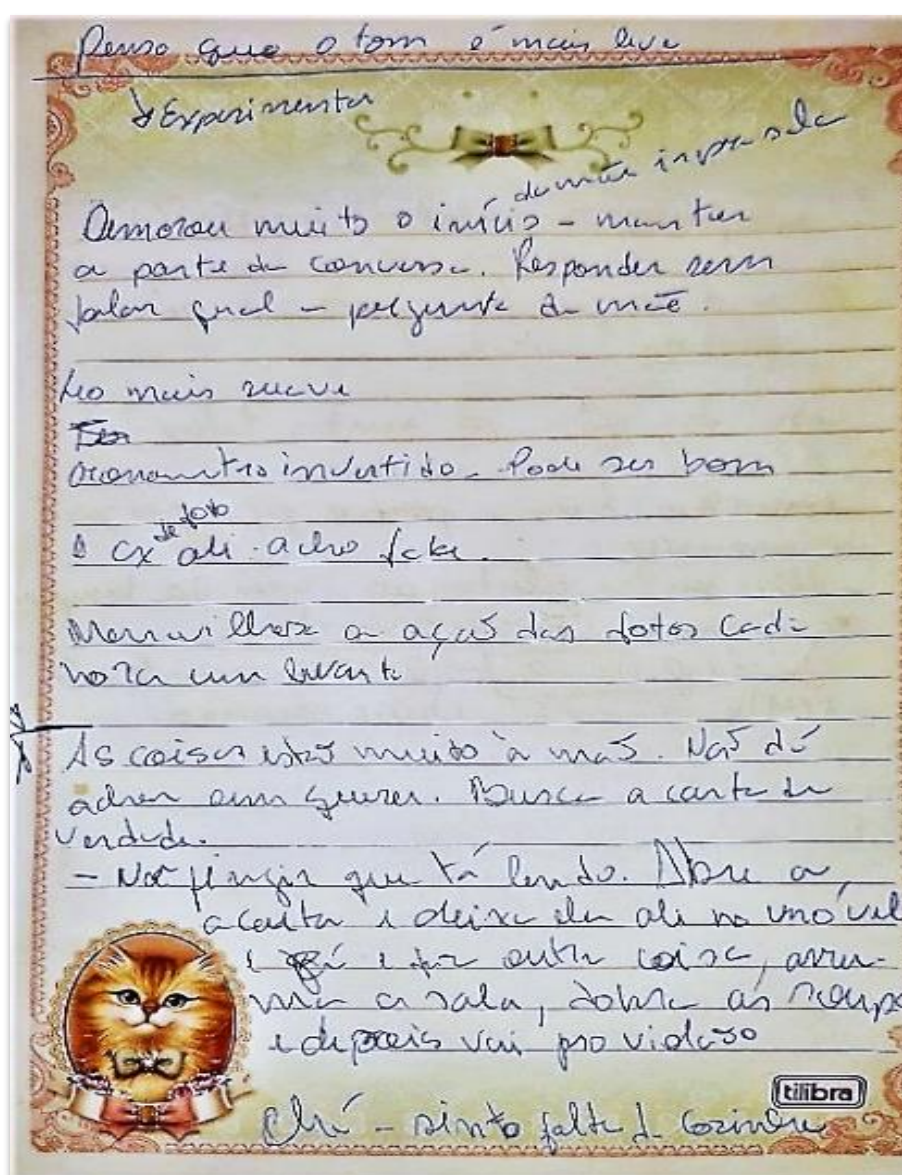 Penso que o tom é mais leve
Experimentar
da mãe ir pra sala
Demorou muito o início - manter
a parte da conversa. Responder sem
falar qual - pergunta da mãe.
Leo mais suave
invertido. Pode ser bom
de foto
e cx ali - acho fake.
Maravilhosa a ação das fotos cada
hora um levanta
As coisas estão muito à mão. Não dá
achar sem querer. Busca a carta de
verdade.
- Não fingir que tá lendo. Abre a
a carta e deixa ela ali no móvel
e faz outra coisa, arru-
ma a sala, dobra as roupas
e depois vai pro vidaso
tilibra
Chá - sinto falta da cozinha